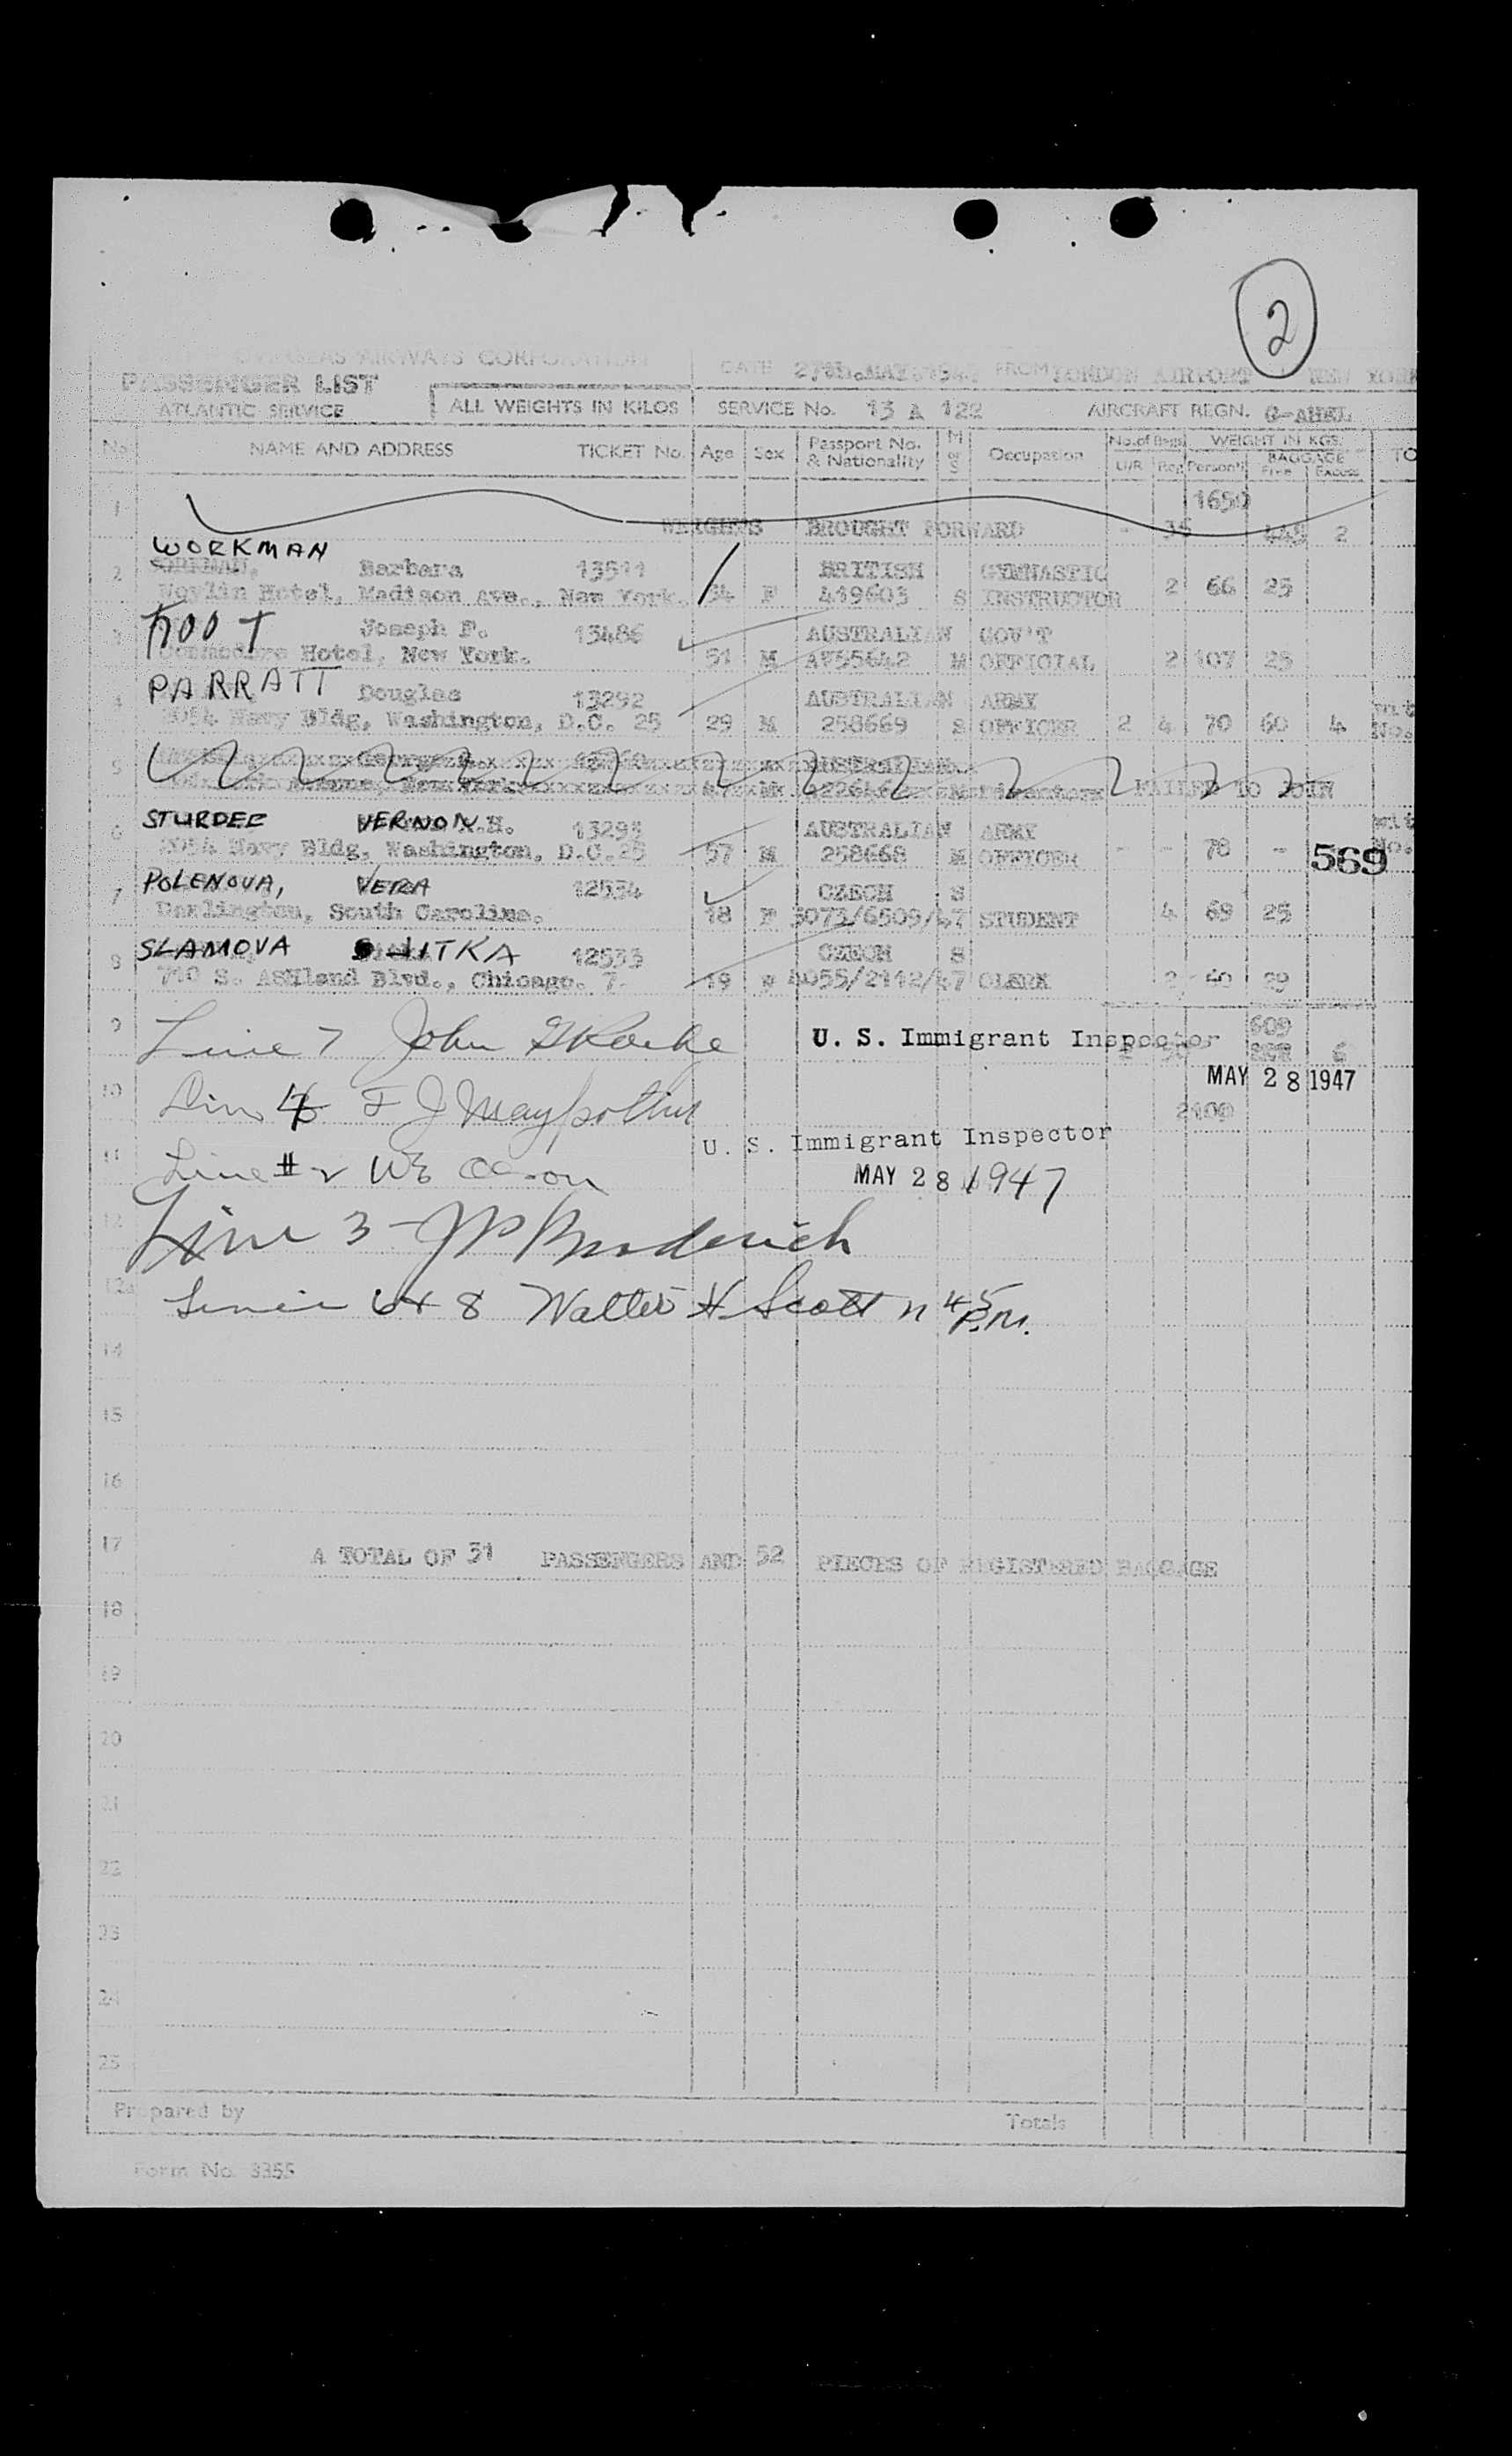 2
OVERSEAS AIRWAYS CORPORATION
PASSENGER LIST
ATLANTIC SERVICE
ALL WEIGHTS IN KILOS
DATE MAY FROM LONDON AIRPORT NEW YORK
SERVICE No. 13 A 122 AIRCRAFT REGN.
No NAME AND ADDRESS TICKET No. Age Sex Passport No. & Nationality M or S Occupation No. of Bags U/R Reg WEIGHT IN KGS. Person'l BAGGAGE Free Excess TO
1 1650
WEIGHTS BROUGHT FORWARD - 35 449 2
WORKMAN
2 Barbara 13511 BRITISH GYMNASTIC
Hotel, Madison Ave., New York. 34 F 419603 S INSTRUCTOR 2 66 25
3 Joseph F. 13486 AUSTRALIAN GOV'T
Commodore Hotel, New York. 51 M 55642 M OFFICIAL 2 107 25
4 PARRATT Douglas 13292 AUSTRALIAN ARMY
2054 Navy Bldg, Washington, D.C. 25 29 M 258669 S OFFICER 2 4 70 60 4 No.
5
FAILED TO JOIN
6 STURDEE VERNON .H. 13293 AUSTRALIAN ARMY
2054 Navy Bldg, Washington, D.C. 25 57 M 258668 M OFFICER - - 78 - No.
569
7 POLENOVA, VERA 12534 CZECH S
Darlington, South Carolina. 18 F 3073/6509/47 STUDENT 4 69 25
8 SLAMOVA JITKA 12533 CZECH S
710 S. Ashland Blvd., Chicago. 7. 19 4055/2112/47 CLERK 2 60 29
9 Line 7 John U. S. Immigrant Inspector 609
6
MAY 28 1947
10 J
2100
U. S. Immigrant Inspector
11 Line # 2 W
MAY 28 1947
12 Line 3 - J P Broderick
Lines 6 + 8 Walter H Scott 11 45 P.M.
14
15
16
17 A TOTAL OF 31 PASSENGERS AND 52 PIECES OF REGISTERED BAGGAGE
18
19
20
21
22
23
24
25
Prepared by Totals
Form No. 3355